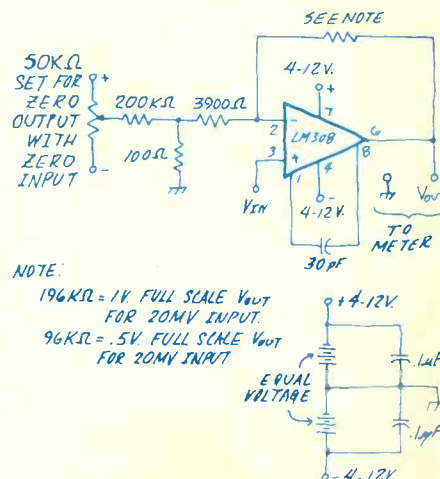 SEE NOTE
50KΩ
SET FOR
ZERO
OUTPUT
WITH
ZERO
INPUT
+
-
200KΩ
3900Ω
100Ω
4-12V.
+
7
2
-
LM308
6
8
3
+
1
4
-
4-12V.
VIN
VOUT
30PF
TO
METER
NOTE:
196KΩ = 1V. FULL SCALE VOUT
FOR 20MV INPUT.
96KΩ = .5V. FULL SCALE VOUT
FOR 20MV INPUT
+4-12V.
EQUAL
VOLTAGE
.1µF
.1µF
-4-12V.